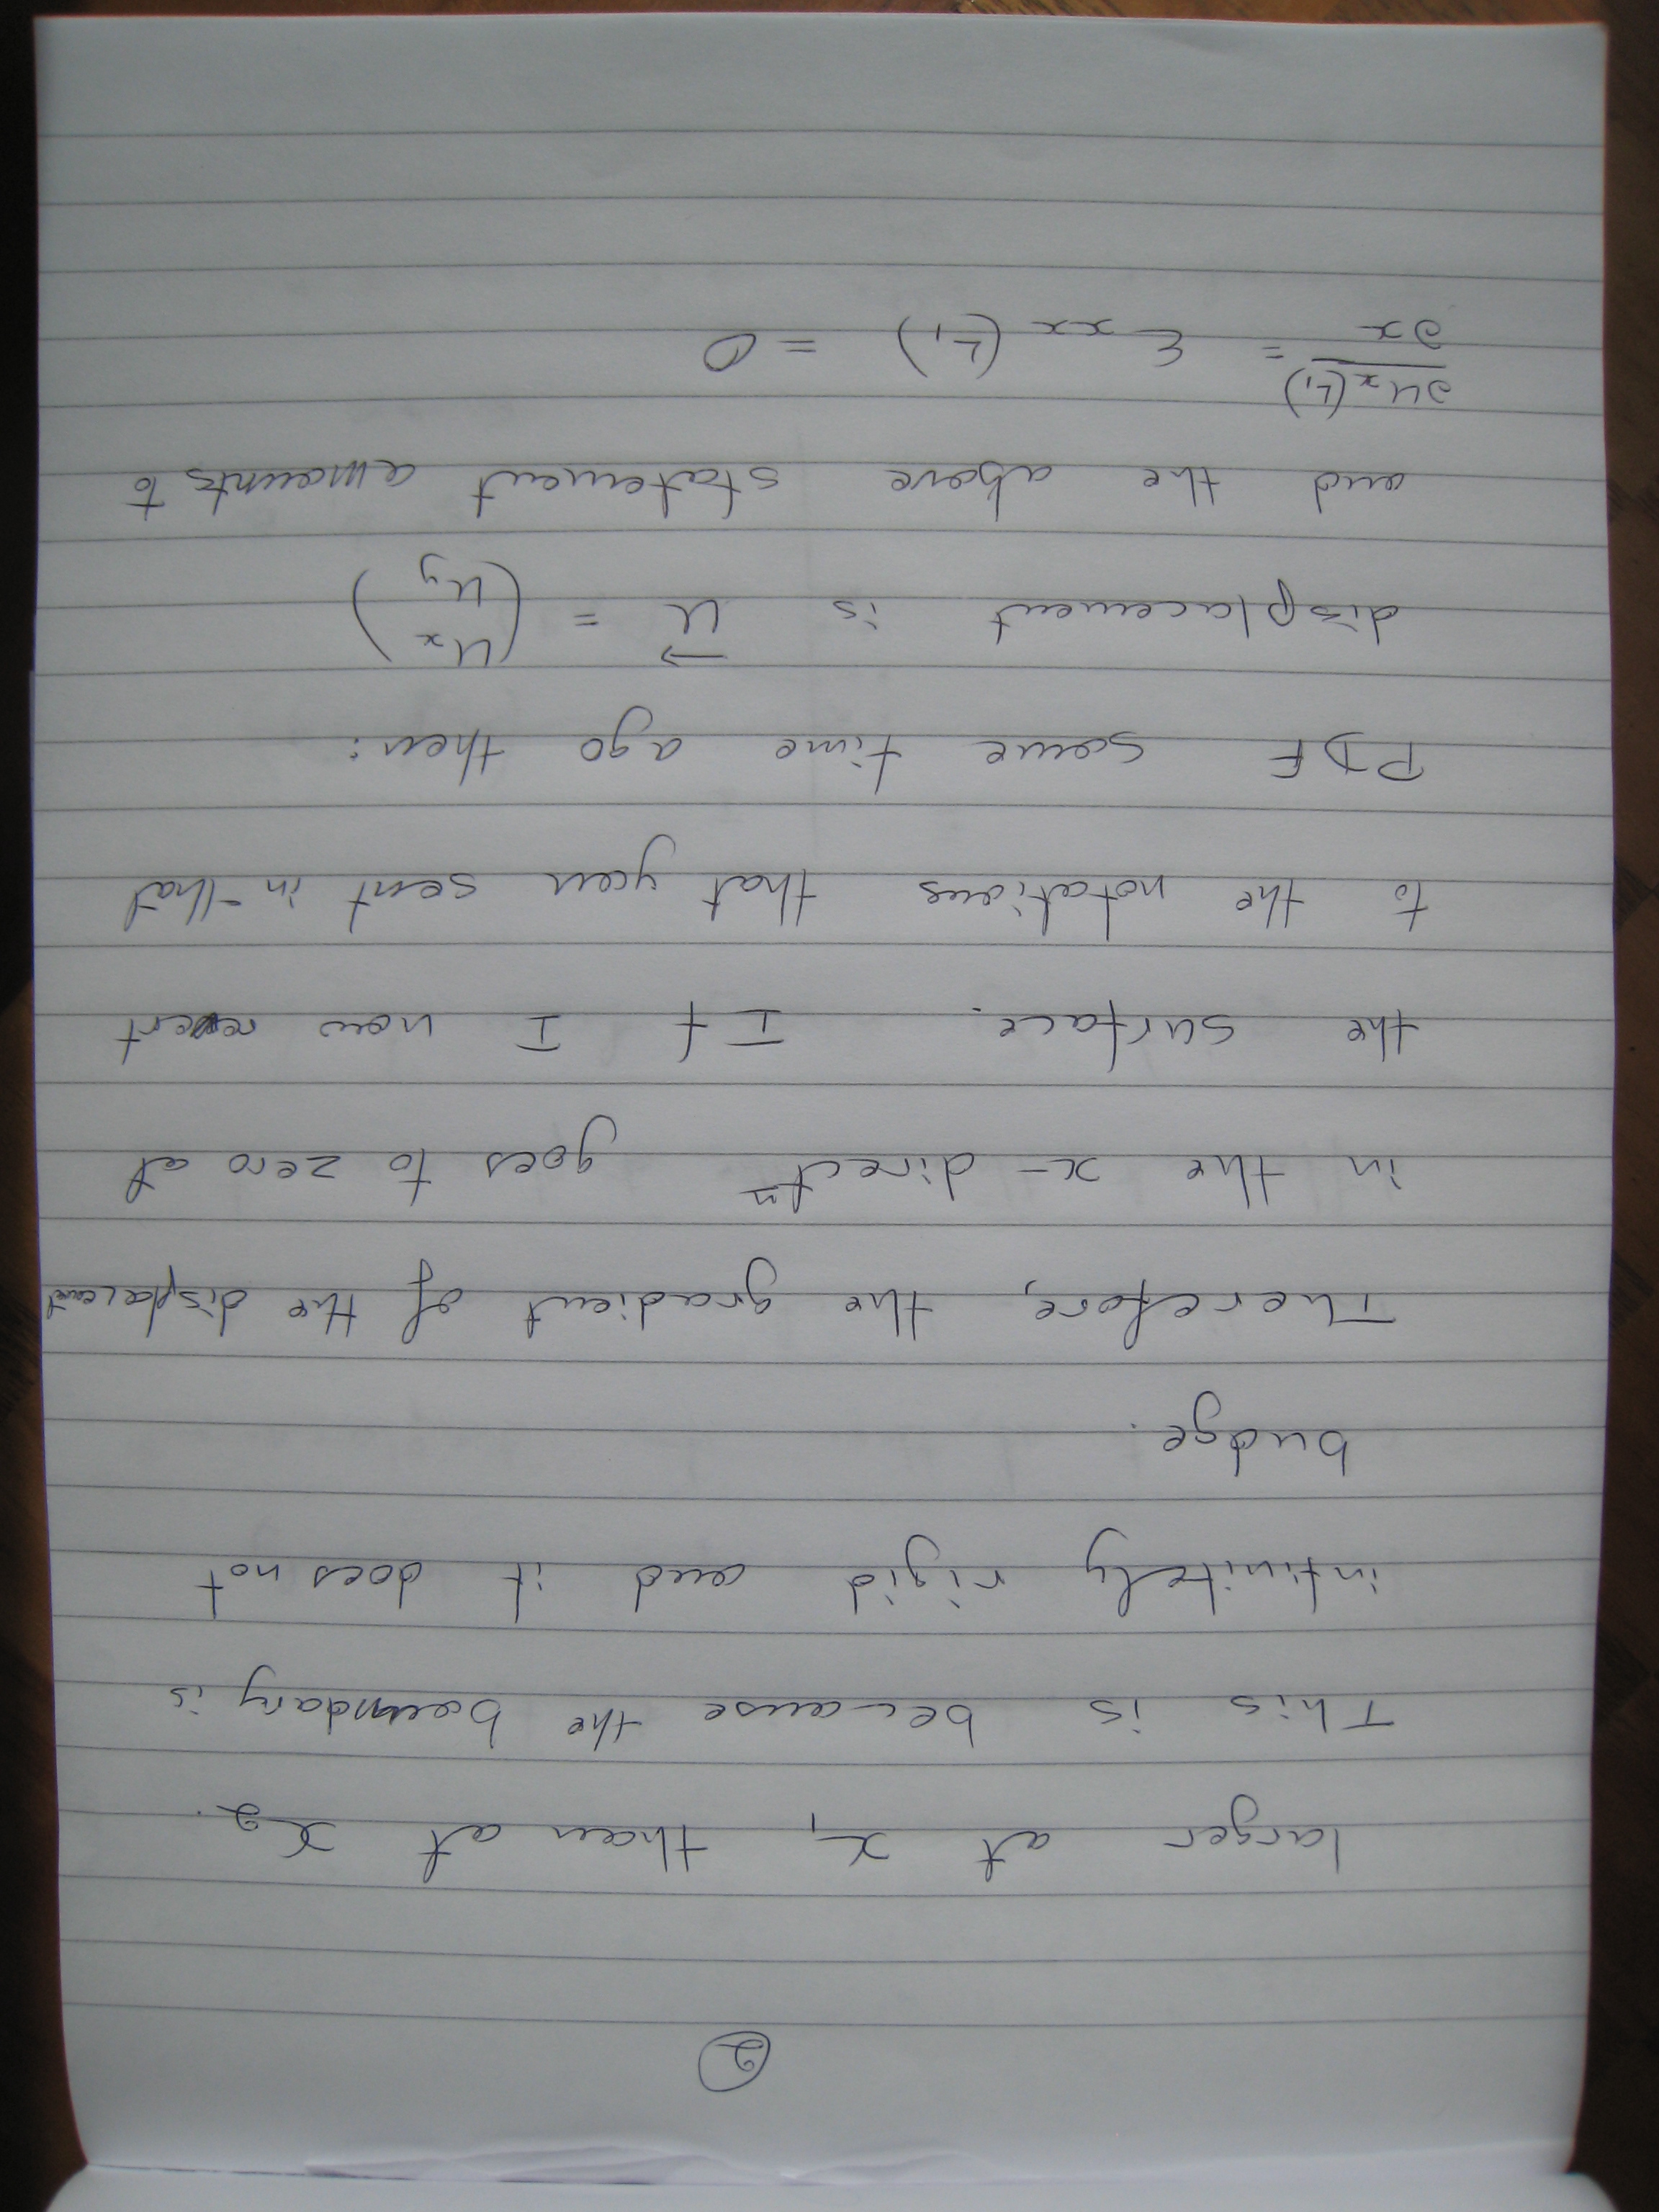 ②
larger at x₁ than at x₂.
This is because the boundary is
infinitely rigid and it does not
budge.
Therefore, the gradient of the displacemt
in the x-directⁿ goes to zero at
the surface. If I now revert
to the notations that you sent in that
PDF some time ago then:
displacement is u⃗ = (uₓ u_y)
and the above statement amounts to
∂uₓ(L₁)/∂x = εₓₓ(L₁) = 0